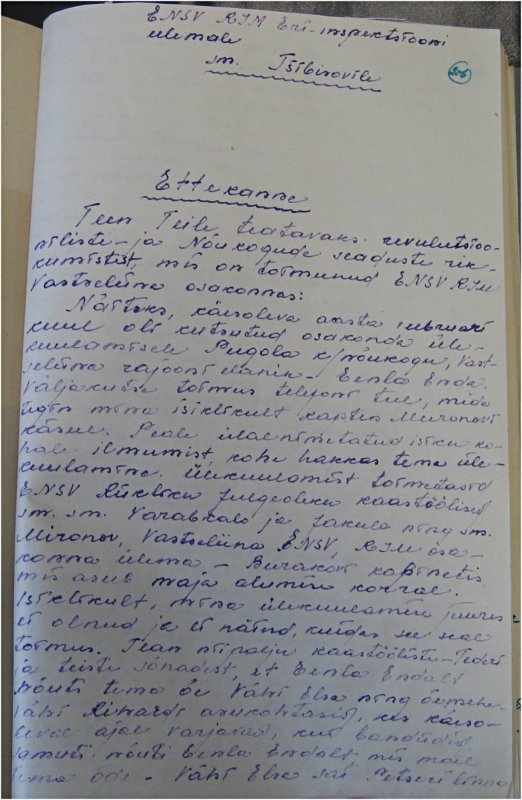 ENSV RJM Eri-inspektsiooni
ülemale
sm. Tsibirovile
206
Ettekanne
Teen Teile teatavaks revulutsioo-
niliste- ja Nõukogude seaduste rik-
kumistist, mis on toimunud ENSV RJM
Vastseliina osakonnas:
Näiteks, käesoleva aasta
kuul oli kutsutud osakonda üle-
kuulamisele k/nõukogu, Vast-
seliina rajooni elanik - Eenla Enda.
Väljakutse toimus telefoni teel, mida
tegin mina isiklikult kapten Mironovi
käsul. Peale ülalnimetatud isiku ko-
hale ilmumist, kohe hakkas tema üle-
kuulamine. Ülekuulamist toimetasid
ENSV Riikliku Julgeoleku kaastöölised
sm. sm. Varabkalo ja Jakula ning sm.
Mironov, Vastseliina ENSV, RJM osa-
konna ülema - Burakovi kabinetis
mis asub maja alumise korral.
Isiklikult, mina ülekuulamise juures
ei olnud ja ei näinud, kuidas see seal
toimus. Tean niipalju kaastööliste
ja teiste sõnadest, et Eenla Endalt
nõuti tema õe Vähi Elsa ning õemehe-
Vähi Rihardi asukohtasid, kes käeso-
leval ajal varjavad, kui bandiidid
samuti nõuti Eenla Endalt, mis moel
tema õde - Vähi Elsa sai Petseri linna